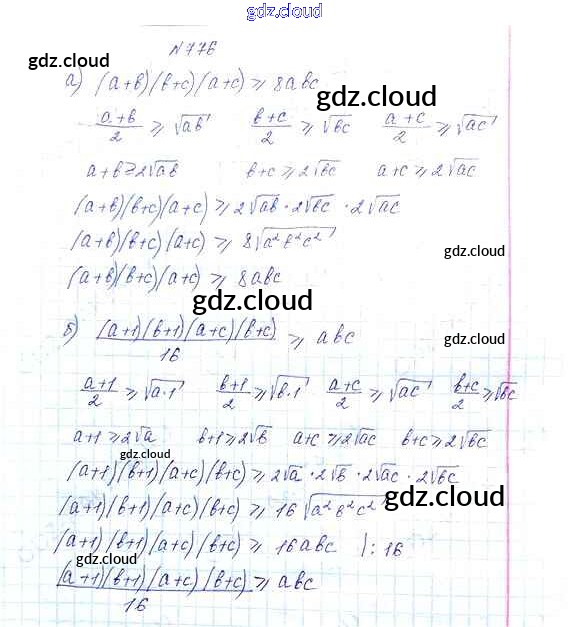 gdz.cloud
№776
gdz.cloud
а) (a+b)(b+c)(a+c) ≥ 8abc
gdz.cloud
(a+b)/2 ≥ √ab (b+c)/2 ≥ √bc (a+c)/2 ≥ √ac
a+b ≥ 2√ab b+c ≥ 2√bc a+c ≥ 2√ac
(a+b)(b+c)(a+c) ≥ 2√ab · 2√bc · 2√ac
(a+b)(b+c)(a+c) ≥ 8√a²b²c²
gdz.cloud
(a+b)(b+c)(a+c) ≥ 8abc
gdz.cloud
б) (a+1)(b+1)(a+c)(b+c)/16 ≥ abc
(a+1)/2 ≥ √a·1 (b+1)/2 ≥ √b·1 (a+c)/2 ≥ √ac (b+c)/2 ≥ √bc
a+1 ≥ 2√a b+1 ≥ 2√b a+c ≥ 2√ac b+c ≥ 2√bc
gdz.cloud
(a+1)(b+1)(a+c)(b+c) ≥ 2√a · 2√b · 2√ac · 2√bc
gdz.cloud
(a+1)(b+1)(a+c)(b+c) ≥ 16√a²b²c²
(a+1)(b+1)(a+c)(b+c) ≥ 16abc |:16
gdz.cloud
gdz.cloud
(a+1)(b+1)(a+c)(b+c)/16 ≥ abc